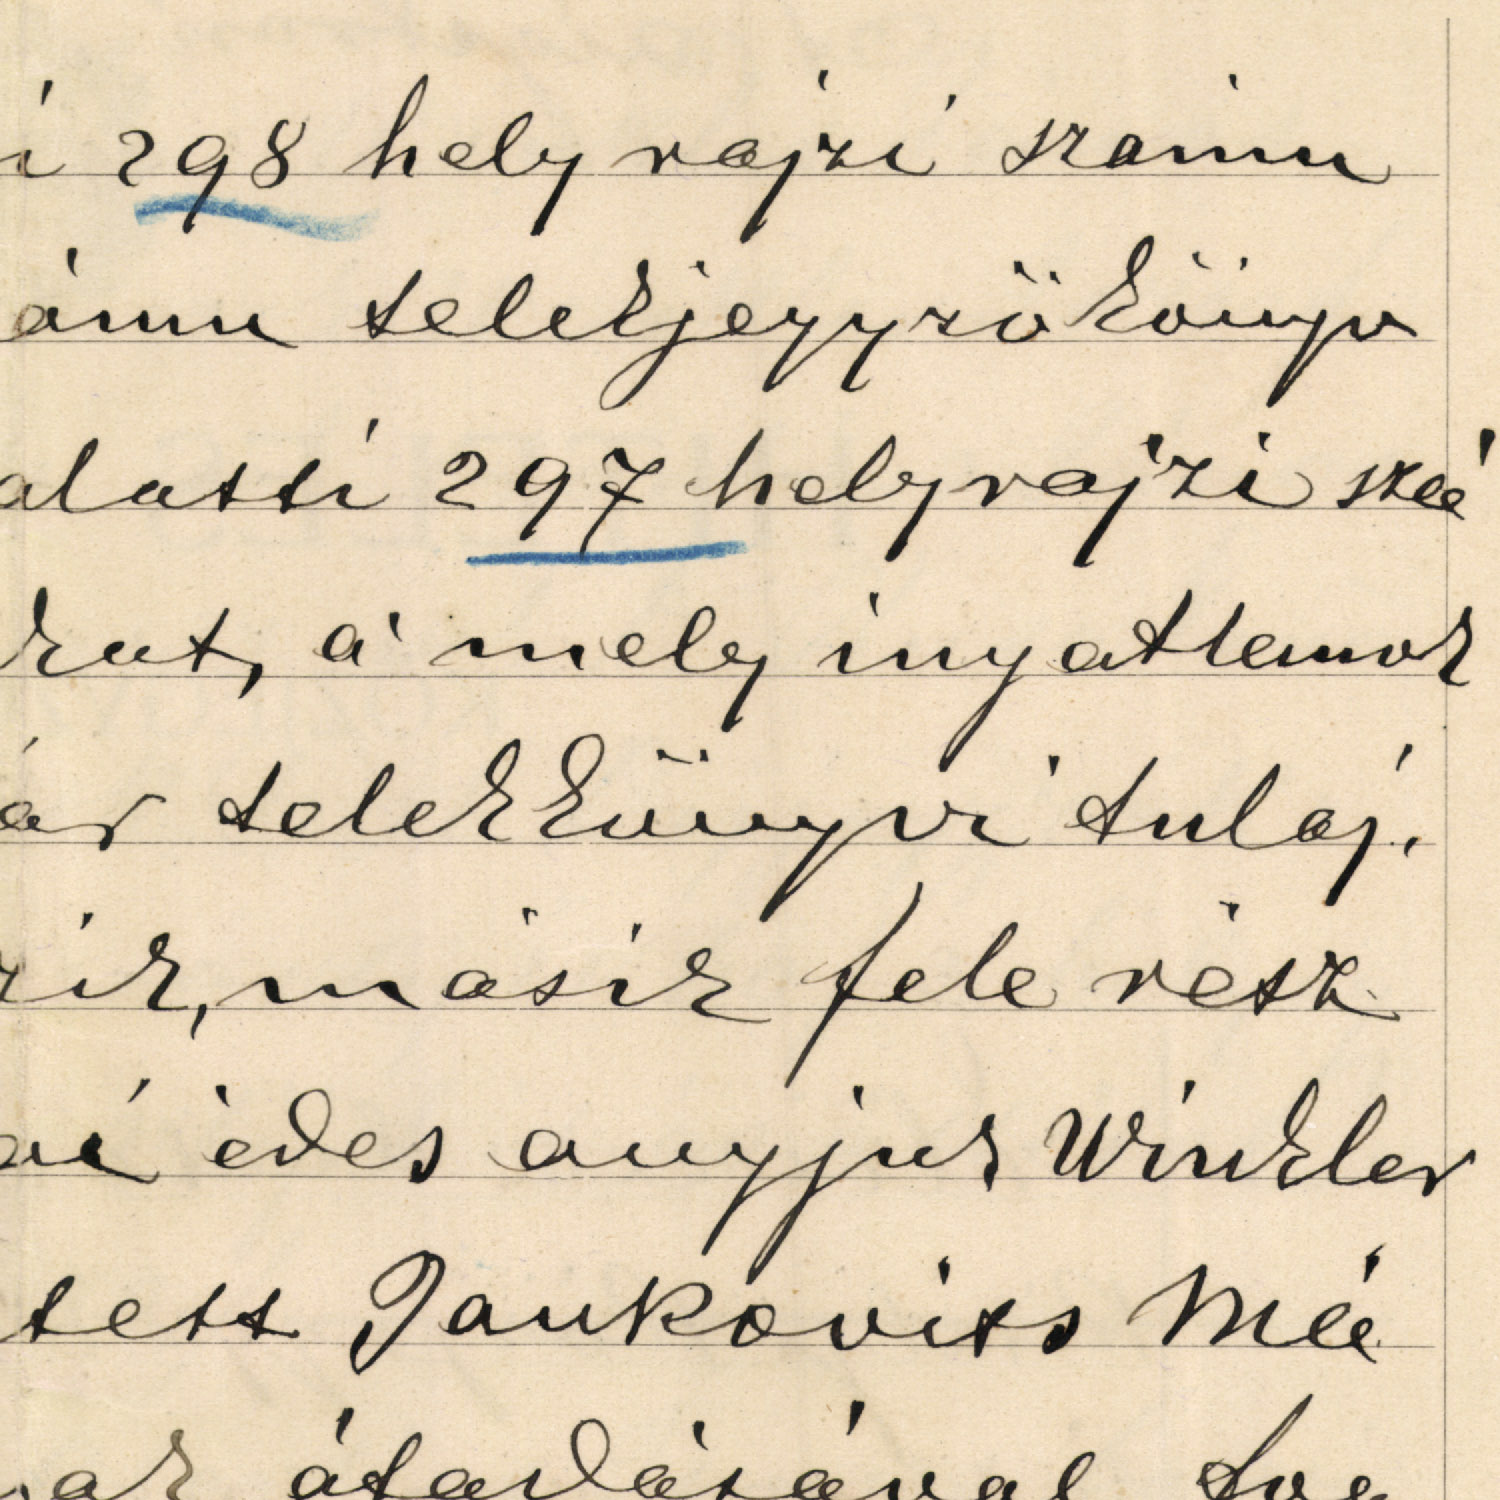 i 298 helyrajzi számu
ámu telekjegyzőkönyv
alatti 297 helyrajzi szá
kat, a mely ingatlanok
ár telekkönyvi tulaj.
zik, másik fele rész
ai édes anyjuk Winkler
tett Jankovits Má
ok átadásával